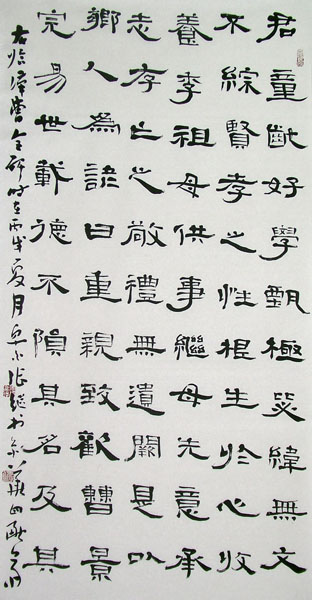 君童齔好學甄極毖緯無文
不綜賢孝之性根生於心收
養季祖母供事繼母先意承
志存亡之敬禮無遺闕是以
鄉人為諺曰重親致歡曹景
完易世載德不隕其名及其
右臨漢曹全碑時在丙戌夏月